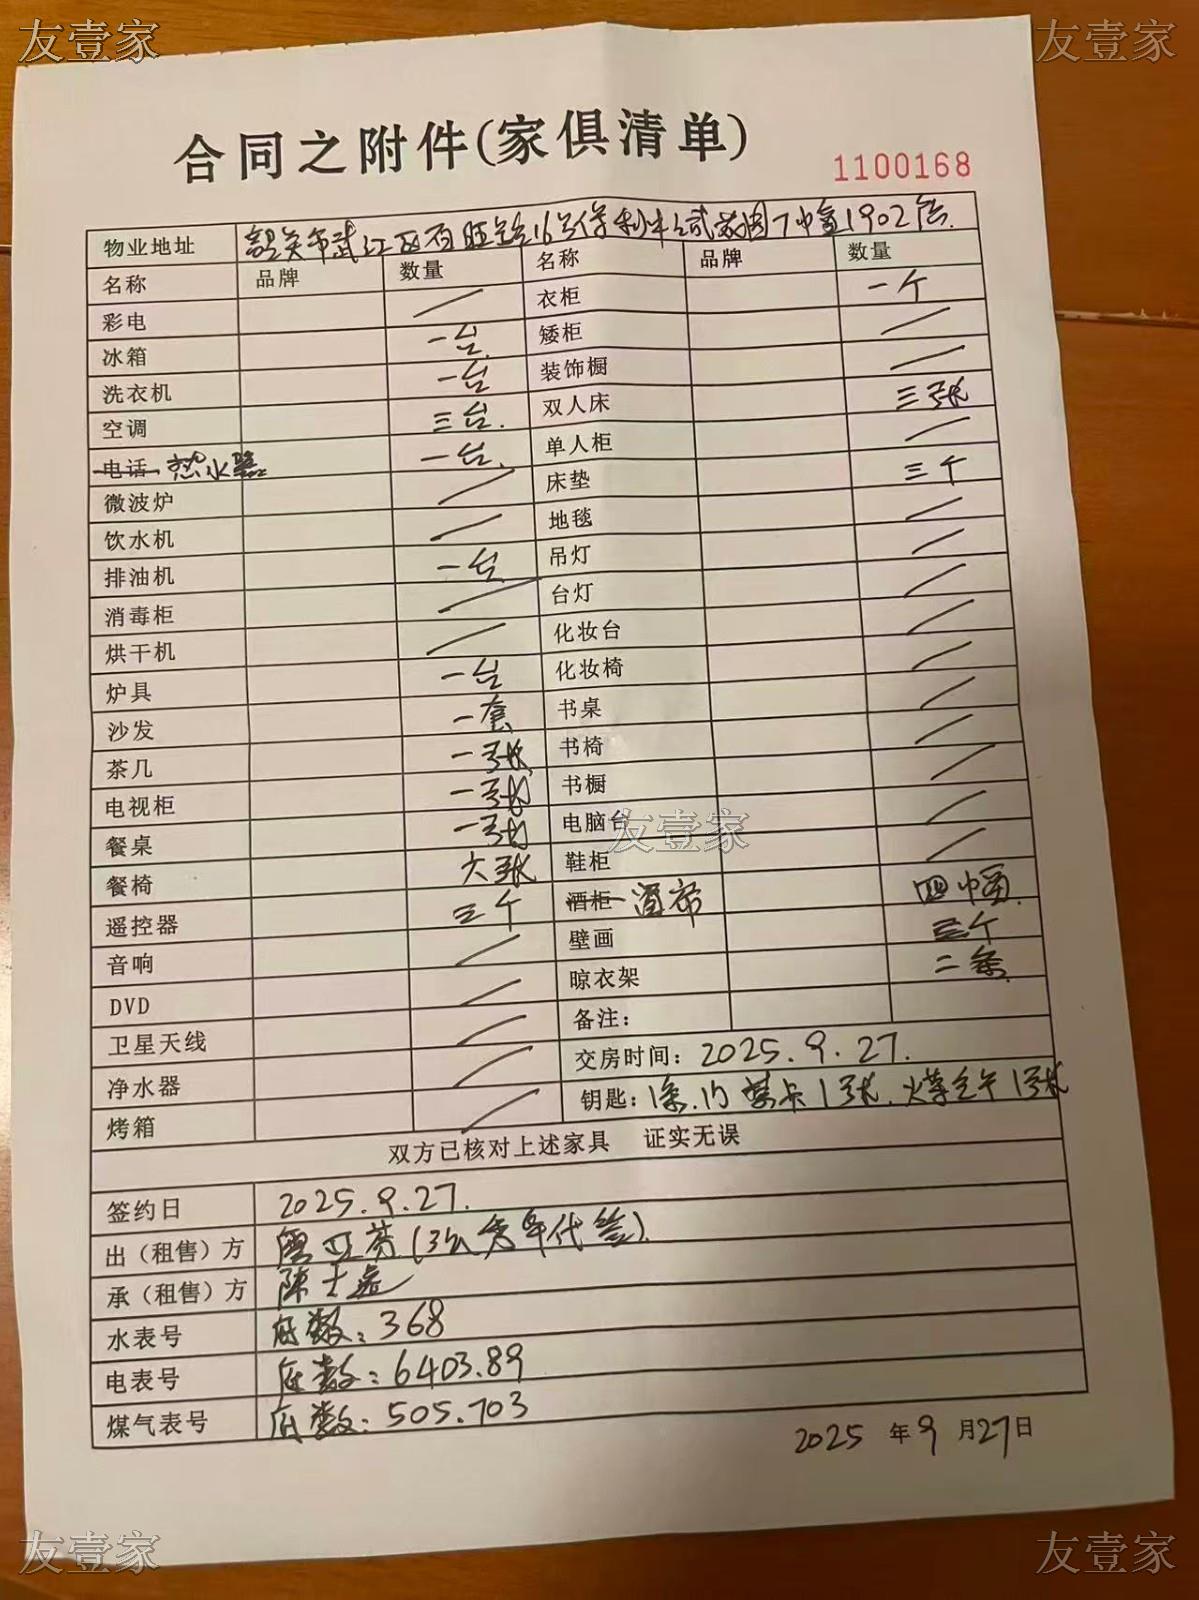 友壹家 友壹家
合同之附件(家俱清单)
1100168
物业地址 韶关市武江区百旺路16号保利中心式花园7幢1902房.
名称 品牌 数量 名称 品牌 数量
彩电 / 衣柜 一个
冰箱 一台. 矮柜 /
洗衣机 一台 装饰橱 /
空调 三台. 双人床 三张
电话 热水器 一台. 单人柜 /
微波炉 / 床垫 三个
饮水机 / 地毯 /
排油机 一台 吊灯 /
消毒柜 / 台灯 /
烘干机 / 化妆台 /
炉具 一台 化妆椅 /
沙发 一套 书桌 /
茶几 一张 书椅 /
电视柜 一张 书橱 /
餐桌 一张 电脑台 /
餐椅 六张 鞋柜 /
遥控器 三个 酒柜 窗帘 四幅.
音响 / 壁画 三个
DVD / 晾衣架 二条
卫星天线 / 备注:
净水器 / 交房时间: 2025.9.27.
烤箱 / 钥匙: 1条.门禁卡1张.
双方已核对上述家具 证实无误
签约日 2025.9.27.
出(租售)方 代签)
承(租售)方 陈士
水表号 底数:368
电表号 底数:6403.89
煤气表号 底数:505.703
2025 年 9 月 27 日
友壹家
友壹家 友壹家